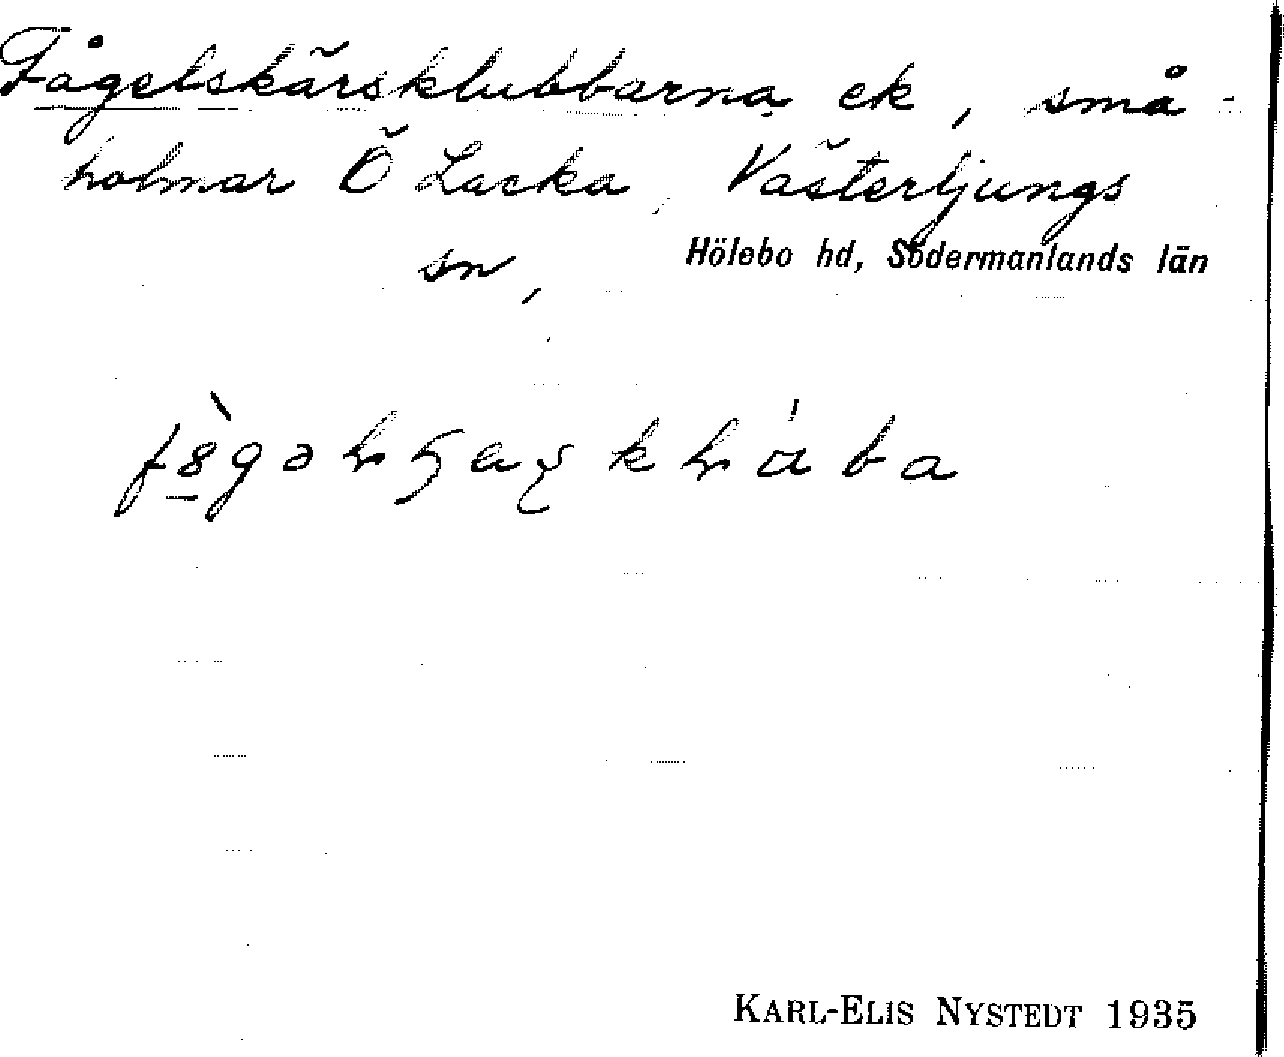 Fågelskärsklubbarna ek, små-
holmar Ö Lacka, Västerljungs
sn, Hölebo hd, Södermanlands län
KARL-ELIS NYSTEDT 1935